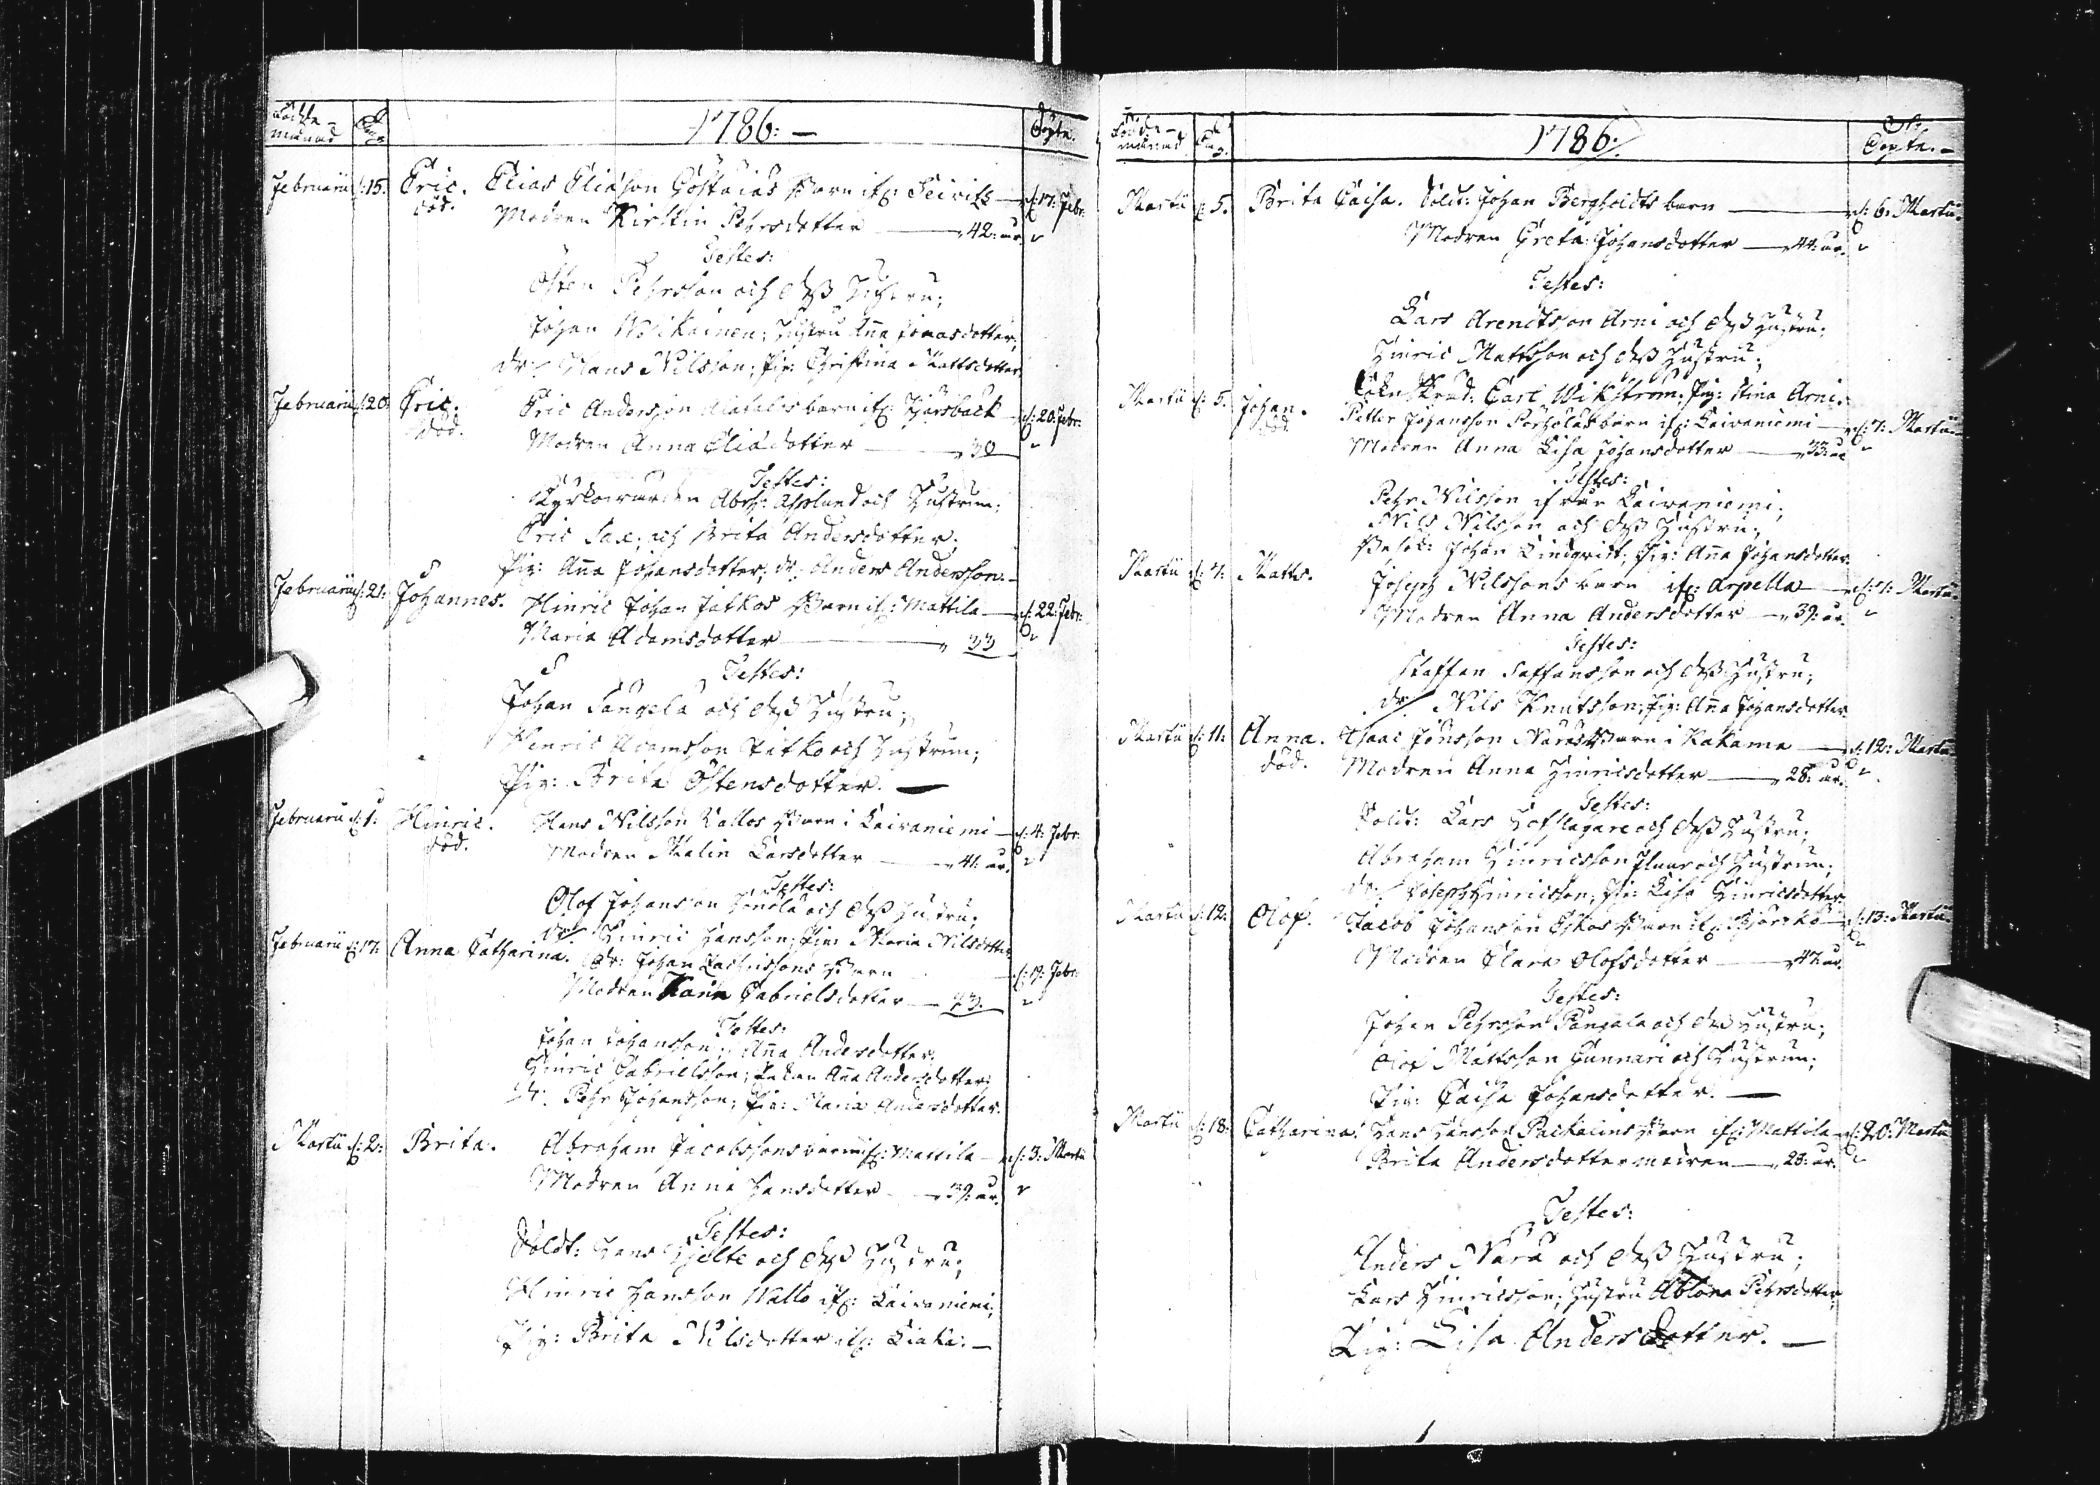 Födde-månad Dag 1786:— Döpte.
Februarii d: 15. Eric. Elias Eliæson barn if: d: 17: Febr:
död. Modren Kirstin Pehrsdotter — 42: år
Testes:
Östen Pehrsson och dess hustru;
Johan Woikainen; hustru Aña Jonasdotter;
dr: Hans Nilsson; Pig: Christina Mattsdotter
Februarii d: 20: Eric. Eric Andersson barn if: d: 20: Febr:
död. Modren Anna Eliædotter — 30
Testes:
Kyrkowärden Abrah: och hustrun;
Eric Sax; och Brita Andersdotter;
Pig: Aña Johansdotter; dr: Anders Andersson.—
Februarii d: 21: Johannes. Hinric Johan Jatkos Barn if: Mattila — d: 22: Febr:
Maria Adamsdotter — 33
Testes:
Johan och dess hustru;
Henric Adamsson Jatko och hustrun;
Pig: Brita Östensdotter. —
Februarii d: 1: Hinric. Hans Nilsson Wallos Barn i Laivaniemi — d: 4: Febr:
död. Modren Malin Larsdotter — 41: år.
Testes:
Olof Johansson och dess hustru;
dr: Hinric Hansson; Pig: Maria Nilsdotter
Februarii d: 17: Anna Catharina. dr: Johan Zachrissons Barn — d: 19: Febr:
Modren Karin Gabrielsdotter — 23.
Testes:
Johan Johansson; Aña Andersdotter;
Hinric Gabrielsson; Aña Andersdotter;
dr: Pehr Johansson; Pig: Maria Andersdotter.
Martii d: 2: Brita. Abraham Jacobssons barn if: Mattila — d: 3: Martii
Modren Anna Hansdotter — 39: år.
Testes:
Soldt: Hans Hjelte och dess hustru;
Hinric Hansson Wallo if: Laivaniemi;
Pig: Brita Nilsdotter if: —
Födde-månad Dag. 1786. Döpte.—
Martii d: 5. Brita Caisa. Soldt: Johan Bergholdts barn — d: 6: Martii.
Modren Greta Johansdotter — 44: år.
Testes:
Lars Arendtsson Arni och dess hustru;
Hinric Mattsson och dess hustru;
Carl Wikström; Pig: Stina Arni.
Martii d: 5: Johan. Petter Johansson barn if: Laivaniemi — d: 7: Martii
död Modren Anna Lisa Johansdotter — 33: år
Testes:
Pehr Nilsson ifrån Laivaniemi;
Nils Nilsson och dess hustru;
Johan Lindqvist; Pig: Aña Johansdotter.
Martii d: 7: Matts. Joseph Nilssons barn if: Arpella — d: 7: Martii
Modren Anna Andersdotter — 39: år.
Testes:
Staffan Staffansson och dess hustru;
dr: Nils Knutsson; Pig: Aña Johansdotter.
Martii d: 11: Anna. Isaac Jönsson Naras Barn i Kakama — d: 12: Martii
död. Modren Anna Hinricsdotter — 28: år.
Testes:
Soldt: Lars Hofslagare och dess hustru;
Abraham Hinricsson och hustrun;
dr: Joseph Hinricsson; Pig: Lisa Hinricsdotter
Martii d: 12: Olof. Jacob Johansson Barn if: Björckö — d: 13: Martii
Modren Clara Olofsdotter — 47: år.
Testes:
Johan Pehrsson och dess hustru;
Olof Mattsson Gunnari och hustrun;
Pig: Caisa Johansdotter. —
Martii d: 18: Catharina. Hans Hansson Paikalins Barn if: Mattila — d: 20: Martii
Brita Andersdotter modren — 28: år.
Testes:
Anders Nara och dess hustru;
Lars Hinricsson; hustru Ablona Pehrsdotter;
Pig: Lisa Andersdotter. —